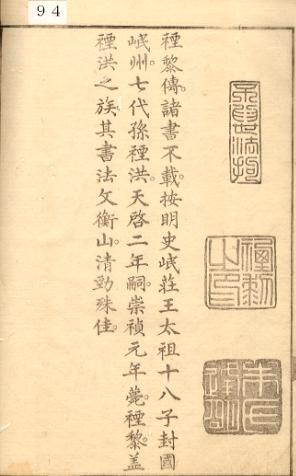 94
禋黎傳。諸書不載。按明史岷莊王太祖十八子封國
岷州。七代孫禋洪天啓二年嗣。崇禎元年薨。禋黎。盖
禋洪之族。其書法文衡山。清勁殊佳。